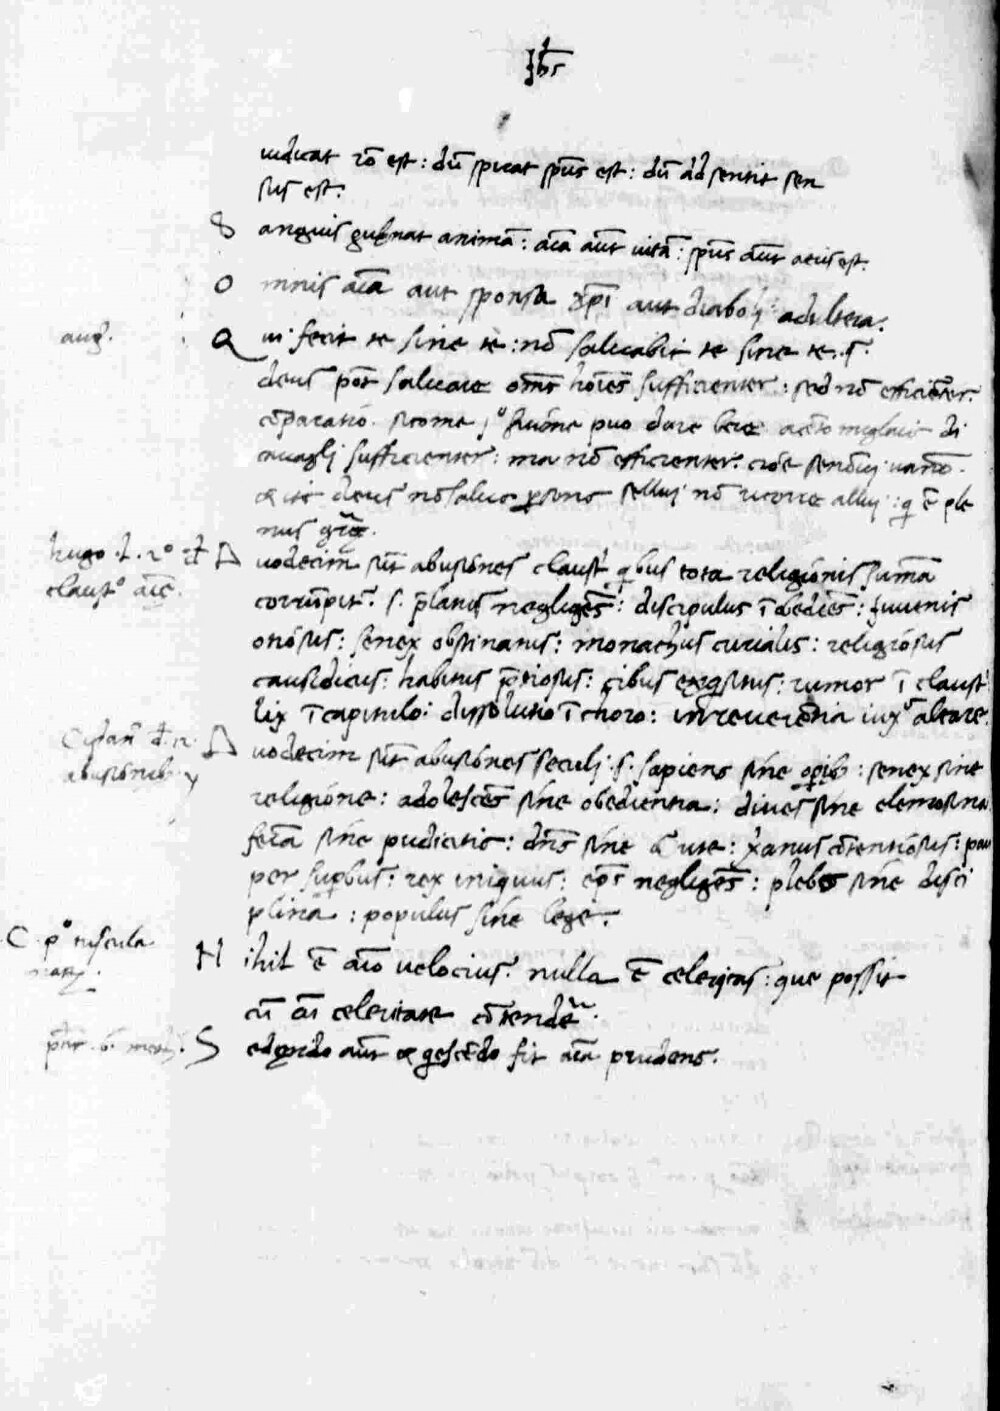 Jh̅s
iudicat ro̅ est : du̅ spirat sp̅us est : du̅ adsentit sen
sus est.
S anguis gub̅nat anima̅ : ai̅a aut̅ uita̅ : sp̅us aut̅ est.
O mnis ai̅a aut sponsa xp̅i aut diaboli adultera.
aug̅.
Q ui fecit te sine te : no̅ saluabit te sine te. s.
deus po̅t saluare om̅s ho̅ies sufficienter : sed no̅ efficie̅ter.
co̅paratio̅. sicome fiume puo dare bere a ce̅to miglaia di
cauagli sufficienter : ma no̅ efficienter. cioe se no̅ ui uano̅.
& ite̅ deus no̅ salua persona sellui no̅ ricorre allui : q̅ e̅ ple
nus gr̅e.
hugo .l. 2º d̅
claustº ai̅e.
D uodecim su̅t abusiones claust̅ q̅bus tota religionis sum̅a
corru̅pit̅. s. p̅latus neglige̅s : discipulus i̅obedie̅s : Juuenis
otiosus : senex obstinatus : monachus curialis : religiosus
causidicus : habitus p̅tiosus : cibus exq̅situs : rumor i̅ claust̅
lix i̅ capitulo : dissolutio i̅ choro : inreuere̅tia iuxº altare.
Cip̅an̅ d̅ 12
abusionib
D uodecim su̅t abusiones seculi .s. sapiens sine op̅ib : senex sine
religione : adolesce̅s sine obedientia : diues sine elemosina
fe̅ia sine pudicitia : dn̅s sine u̅tute : xp̅anus co̅tentiosus : pau
per sup̅bus : rex iniquus : ep̅s neglige̅s : plebs sine disci
plina̅ : populus sine lege.
C. pº tuscula
nar̅.
N ihil e̅ ai̅o uelocius. nulla e̅ celeritas : que possit
cu̅ ai̅ celeritate co̅tende̅.
S edendo aut̅ & q̅esce̅do fit ai̅a prudens.